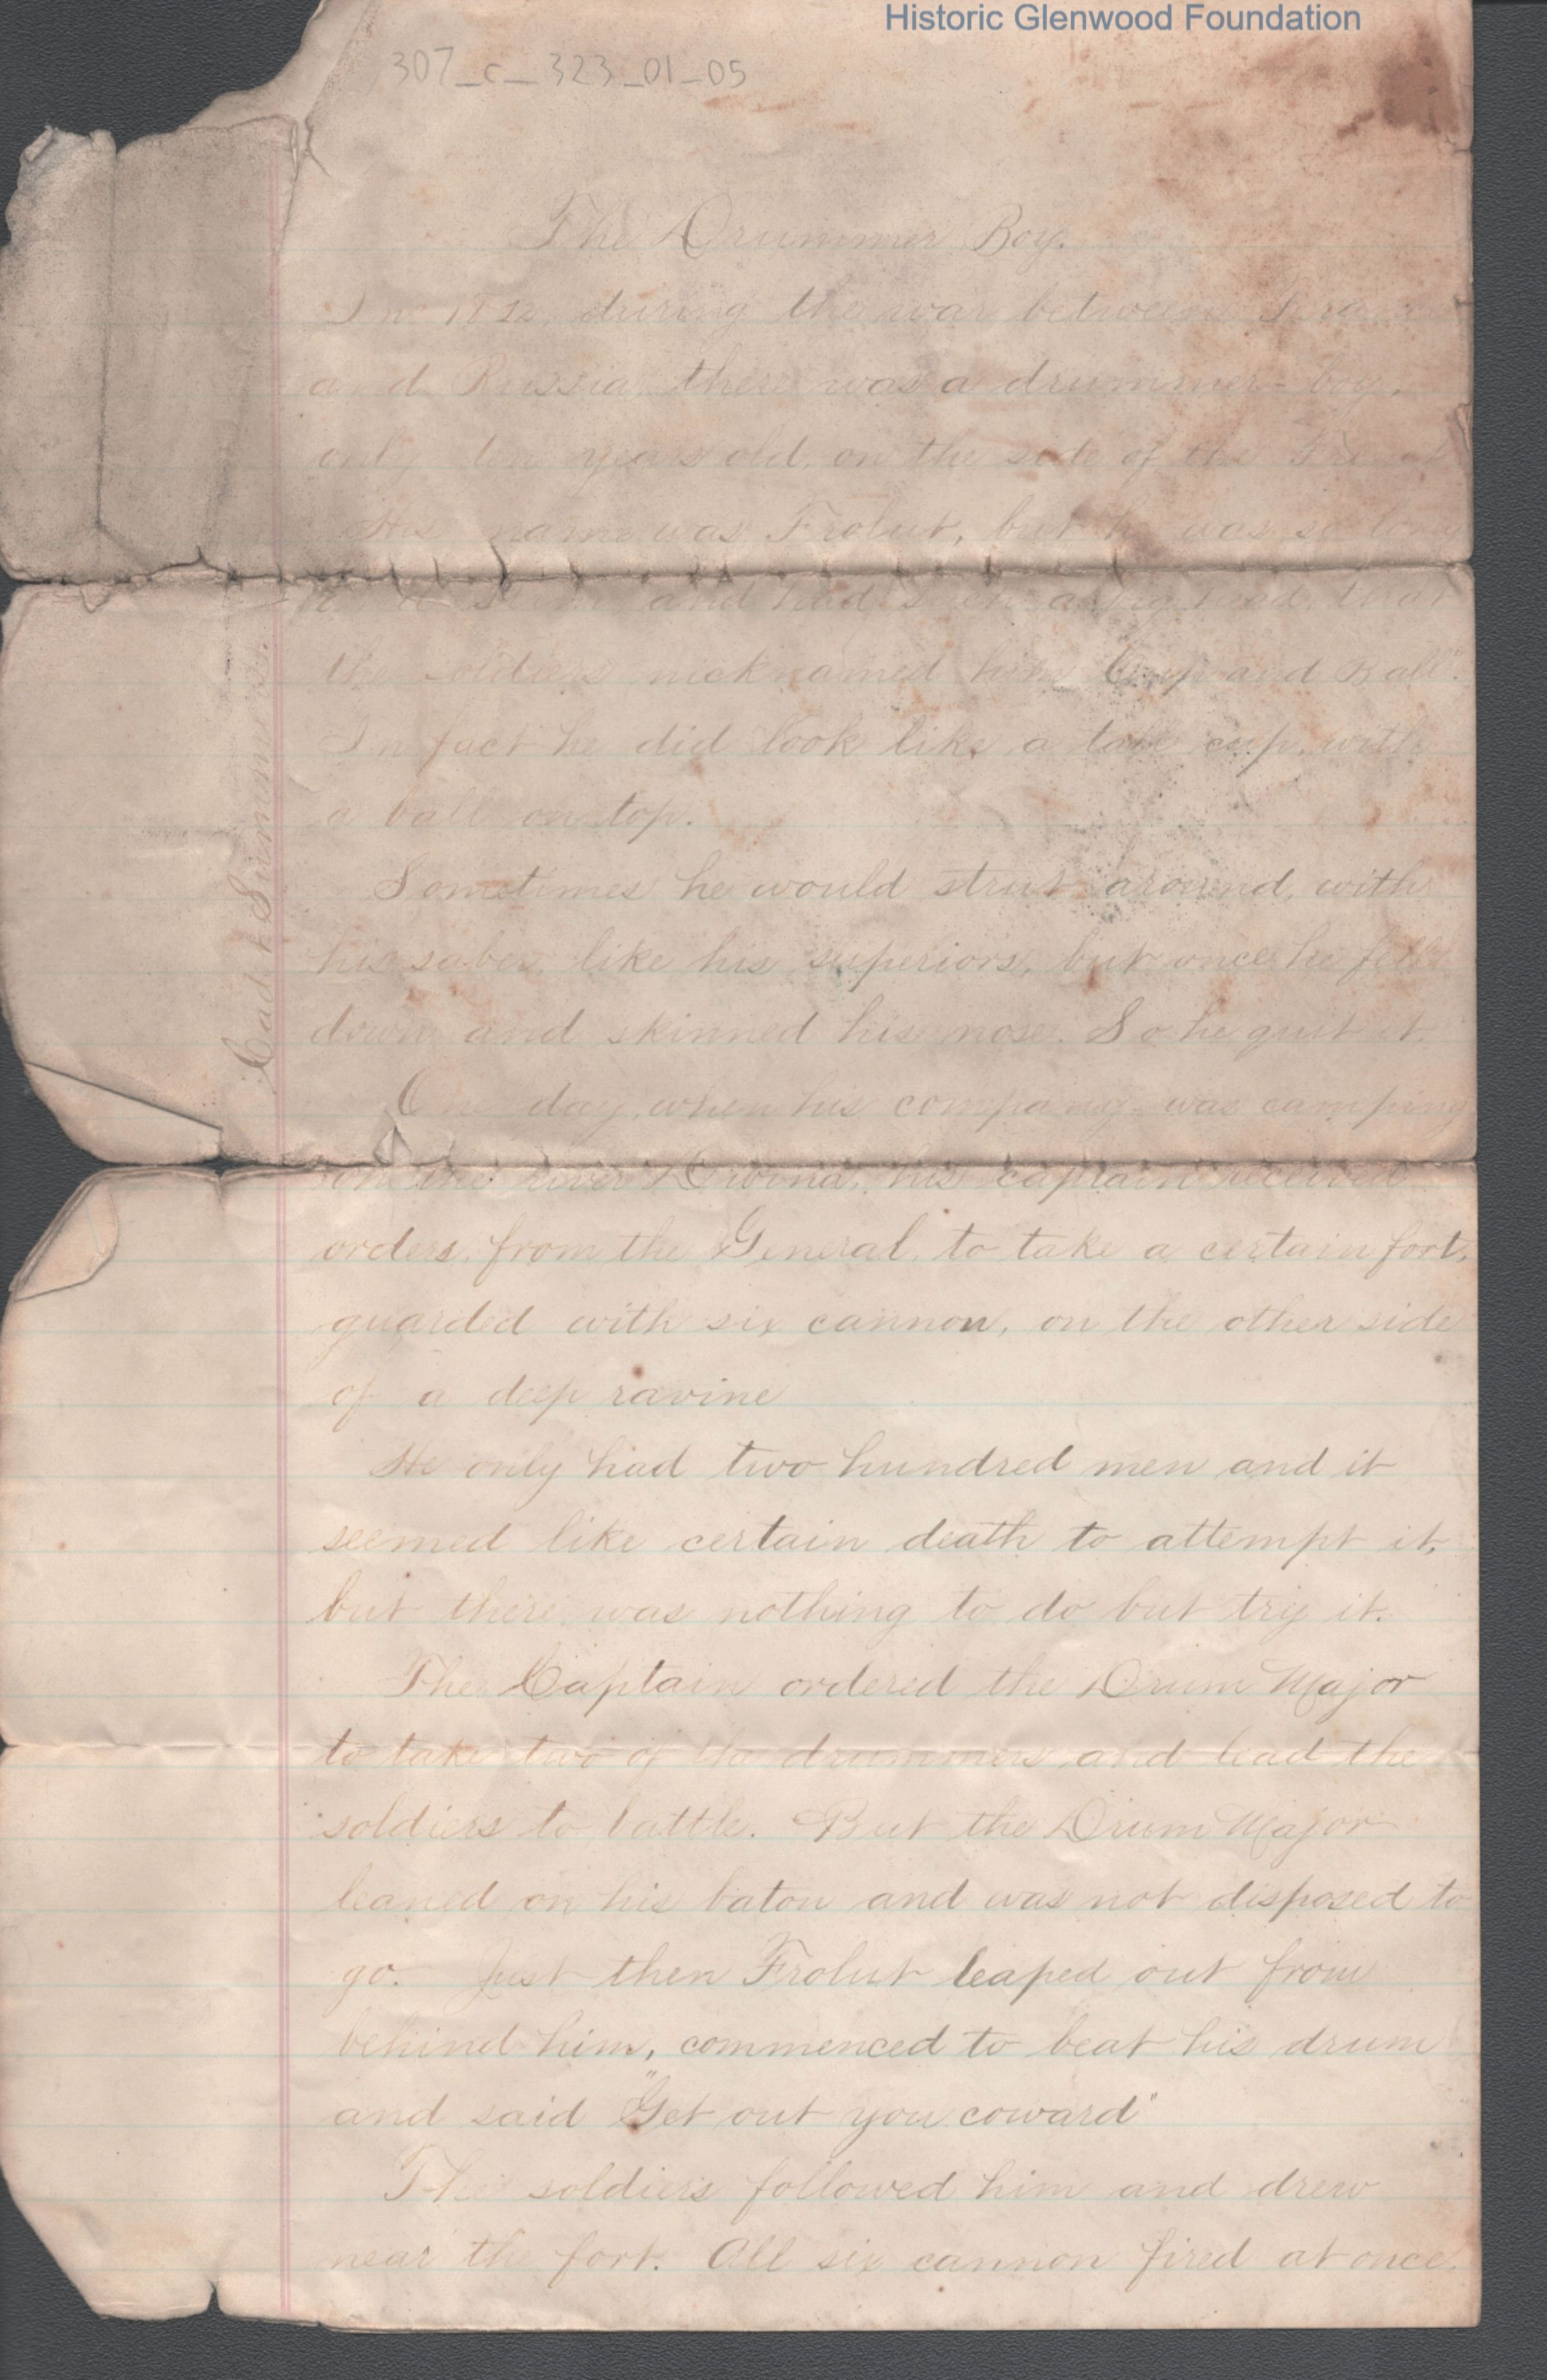 Historic Glenwood Foundation
307_c_323_01_05
The Drummer Boy.
In 1812, during the war between
and Russia, there was a drummer-boy,
only ten years old, on the side of the French
His name was Frolut, but he was so long
and had such a big head, that
the soldiers nicknamed him Cup and Ball".
In fact he did look like a tall cup, with
a ball on top.
Sometimes he would strut around, with
his saber, like his superiors, but once he fell
down and skinned his nose. So he quit it.
One day, when his company was camping
on the river Dwina, his captain received
orders, from the General, to take a certain fort,
guarded with six cannon, on the other side
of a deep ravine
He only had two hundred men and it
seemed like certain death to attempt it,
but there was nothing to do but try it.
The Captain ordered the Drum Major
to take two of the drummers and lead the
soldiers to battle. But the Drum Major
leaned on his baton and was not disposed to
go. Just then Frolut leaped out from
behind him, commenced to beat his drum
and said "Get out you coward"
The soldiers followed him and drew
near the fort. All six cannon fired at once.